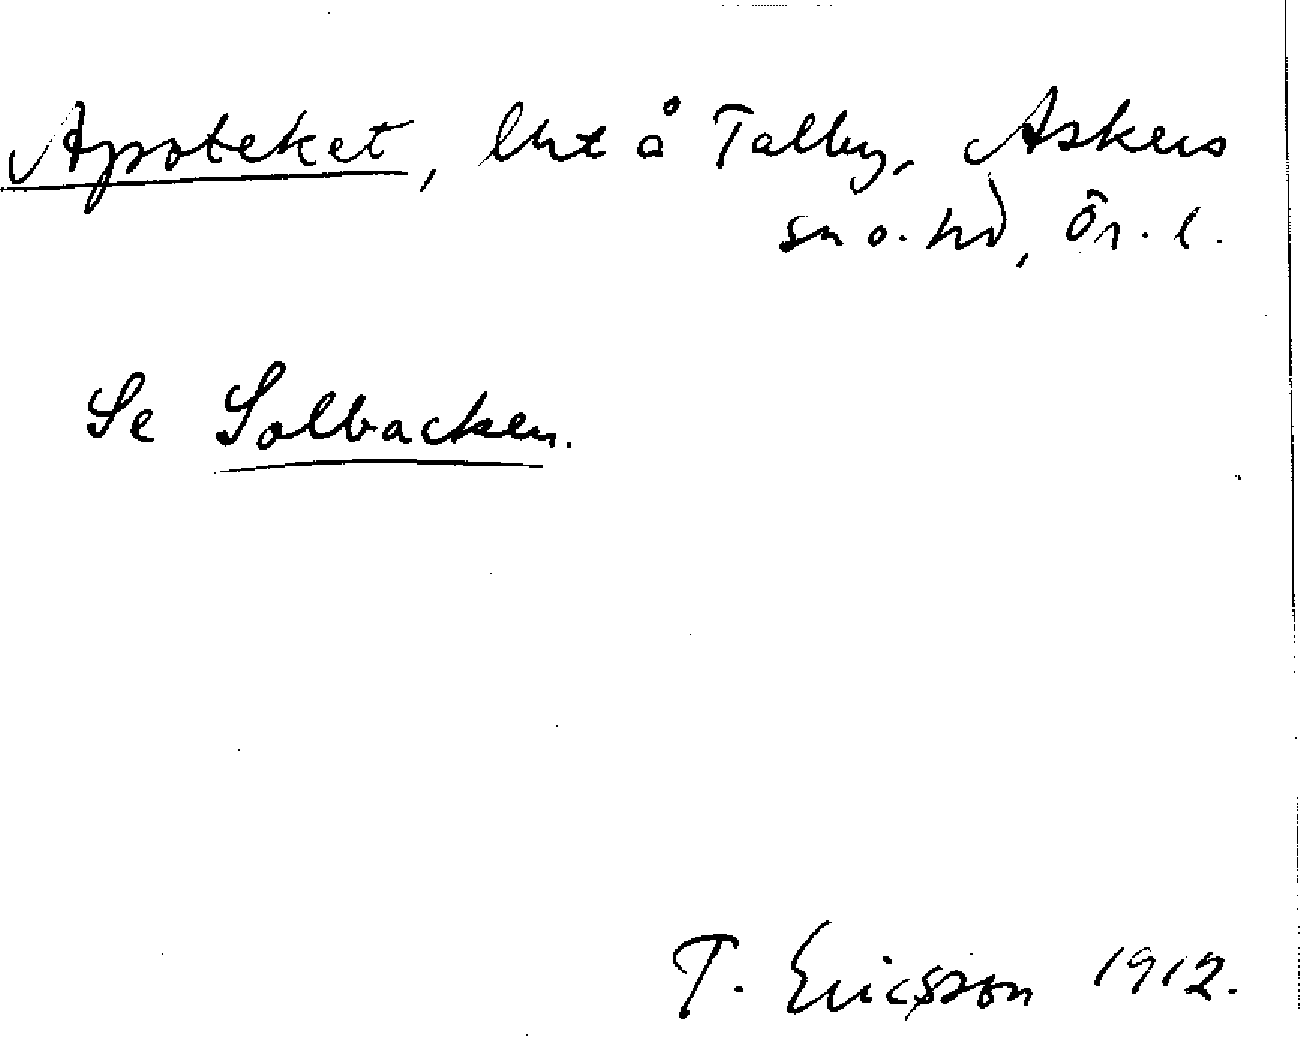 Apoteket, lht å Talby, Askers
sn o. hd, Ör. l.
Se Solbacken.
T. Ericsson 1912.